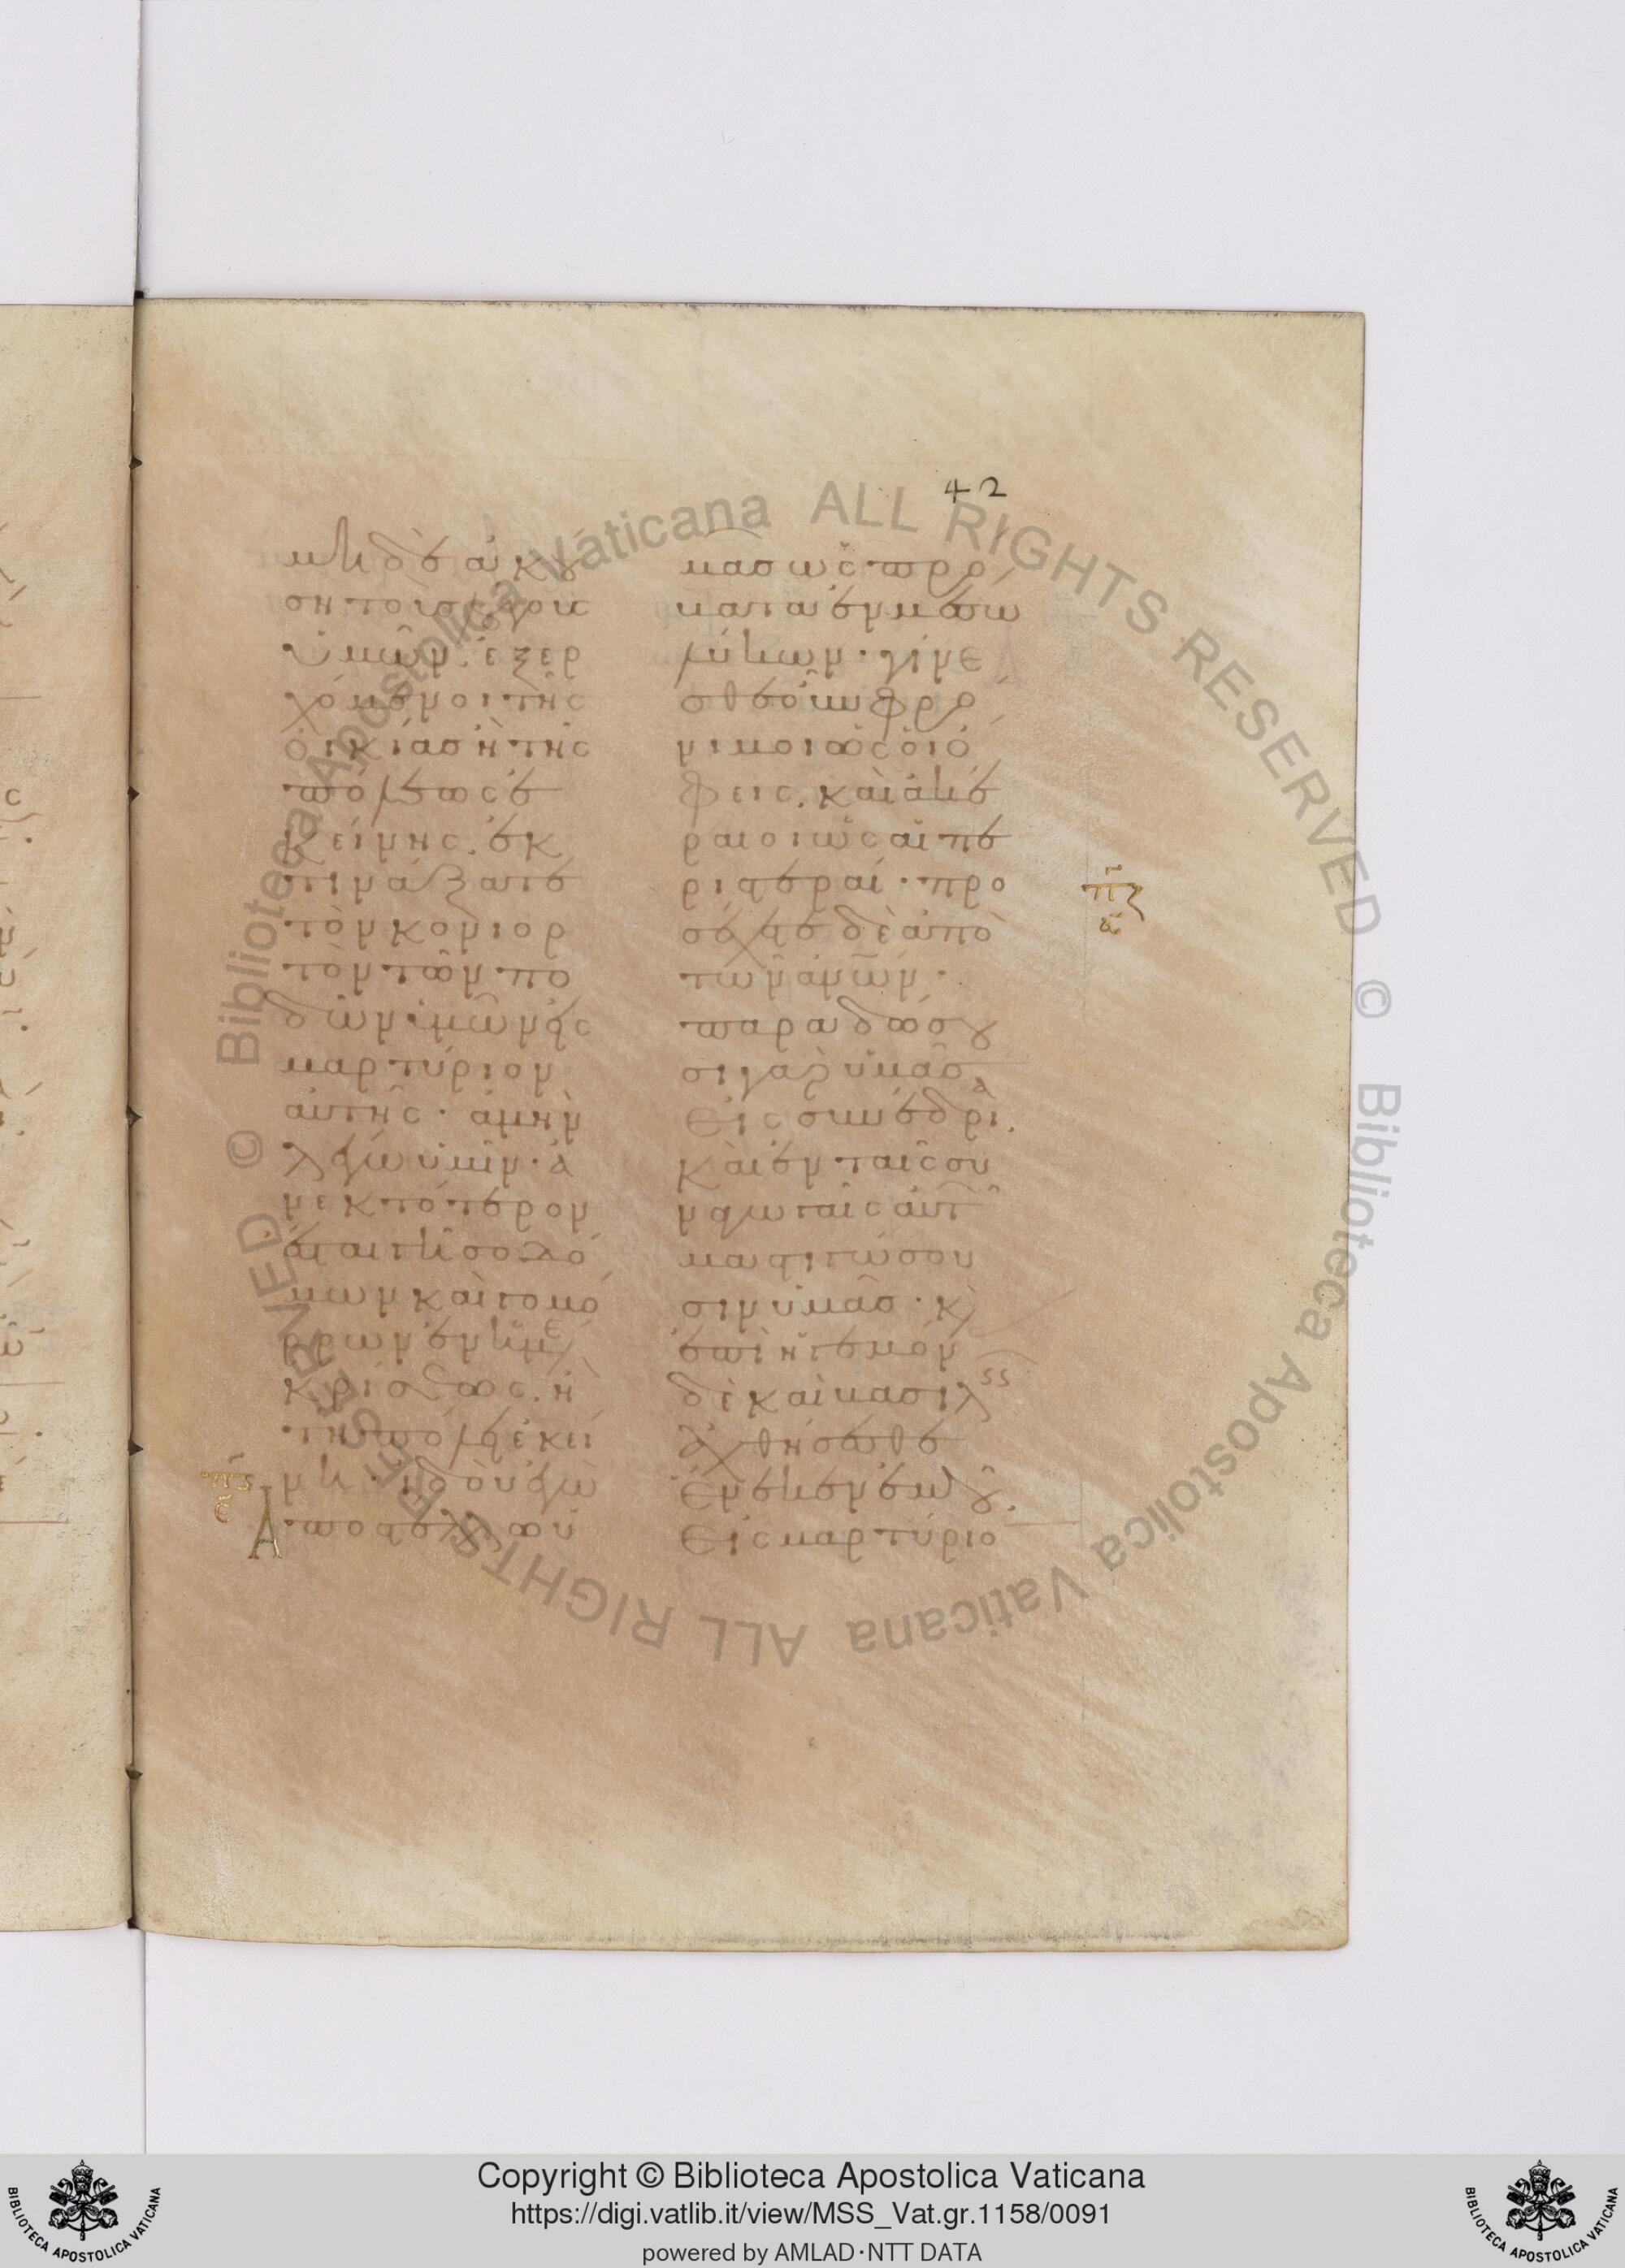 42
μὴ δὲ ἀκού
ση τοὺς λόγους
ὑμῶν. ἐξερ
χόμενοι τῆς
οἰκίας ἢ τῆς
πόλεως ἐ
κείνης. ἐκ
τινάξατε
τὸν κονιορ
τὸν τῶν πο
δῶν ὑμῶν εἰς
μαρτύριον
αὐτῆς. ἀμὴν
λέγω ὑμῖν. ἀ
νεκτότερον
ἔσται γῆ σοδό
μων καὶ γομό
ρρων ἐν ἡμέ
κρίσεως. ἢ
τῇ πόλει ἐκεί
νῃ. ἰδοὺ ἐγὼ
ἀποστέλλω ὑ
μᾶς ὡς πρό
βατα ἐν μέσω
λύκων. γίνε
σθε οὖν φρό
νιμοι ὡς οἱ ὄ
φεις. καὶ ἀκέ
ραιοι ὡς αἱ πε
ριστεραί. προ
σέχετε δὲ ἀπὸ
τῶν ἀνων.
παραδώσου
σι γὰρ ὑμᾶς
εἰς συνέδρια.
καὶ ἐν ταῖς συ
ναγωγαῖς αὐτῶ
μαστιγώσου
σιν ὑμᾶς. κ
ἐπὶ ἡγεμόν
δὲ καὶ βασιλεῖς
ἀχθήσεσθε
ἕνεκεν ἐμοῦ.
εἰς μαρτύριο
πϛ
ε
πζ
α
Copyright © Biblioteca Apostolica Vaticana
https://digi.vatlib.it/view/MSS_Vat.gr.1158/0091
powered by AMLAD·NTT DATA
BIBLIOTECA APOSTOLICA VATICANA
BIBLIOTECA APOSTOLICA VATICANA
© Biblioteca Apostolica Vaticana ALL RIGHTS RESERVED
© Biblioteca Apostolica Vaticana ALL RIGHTS RESERVED